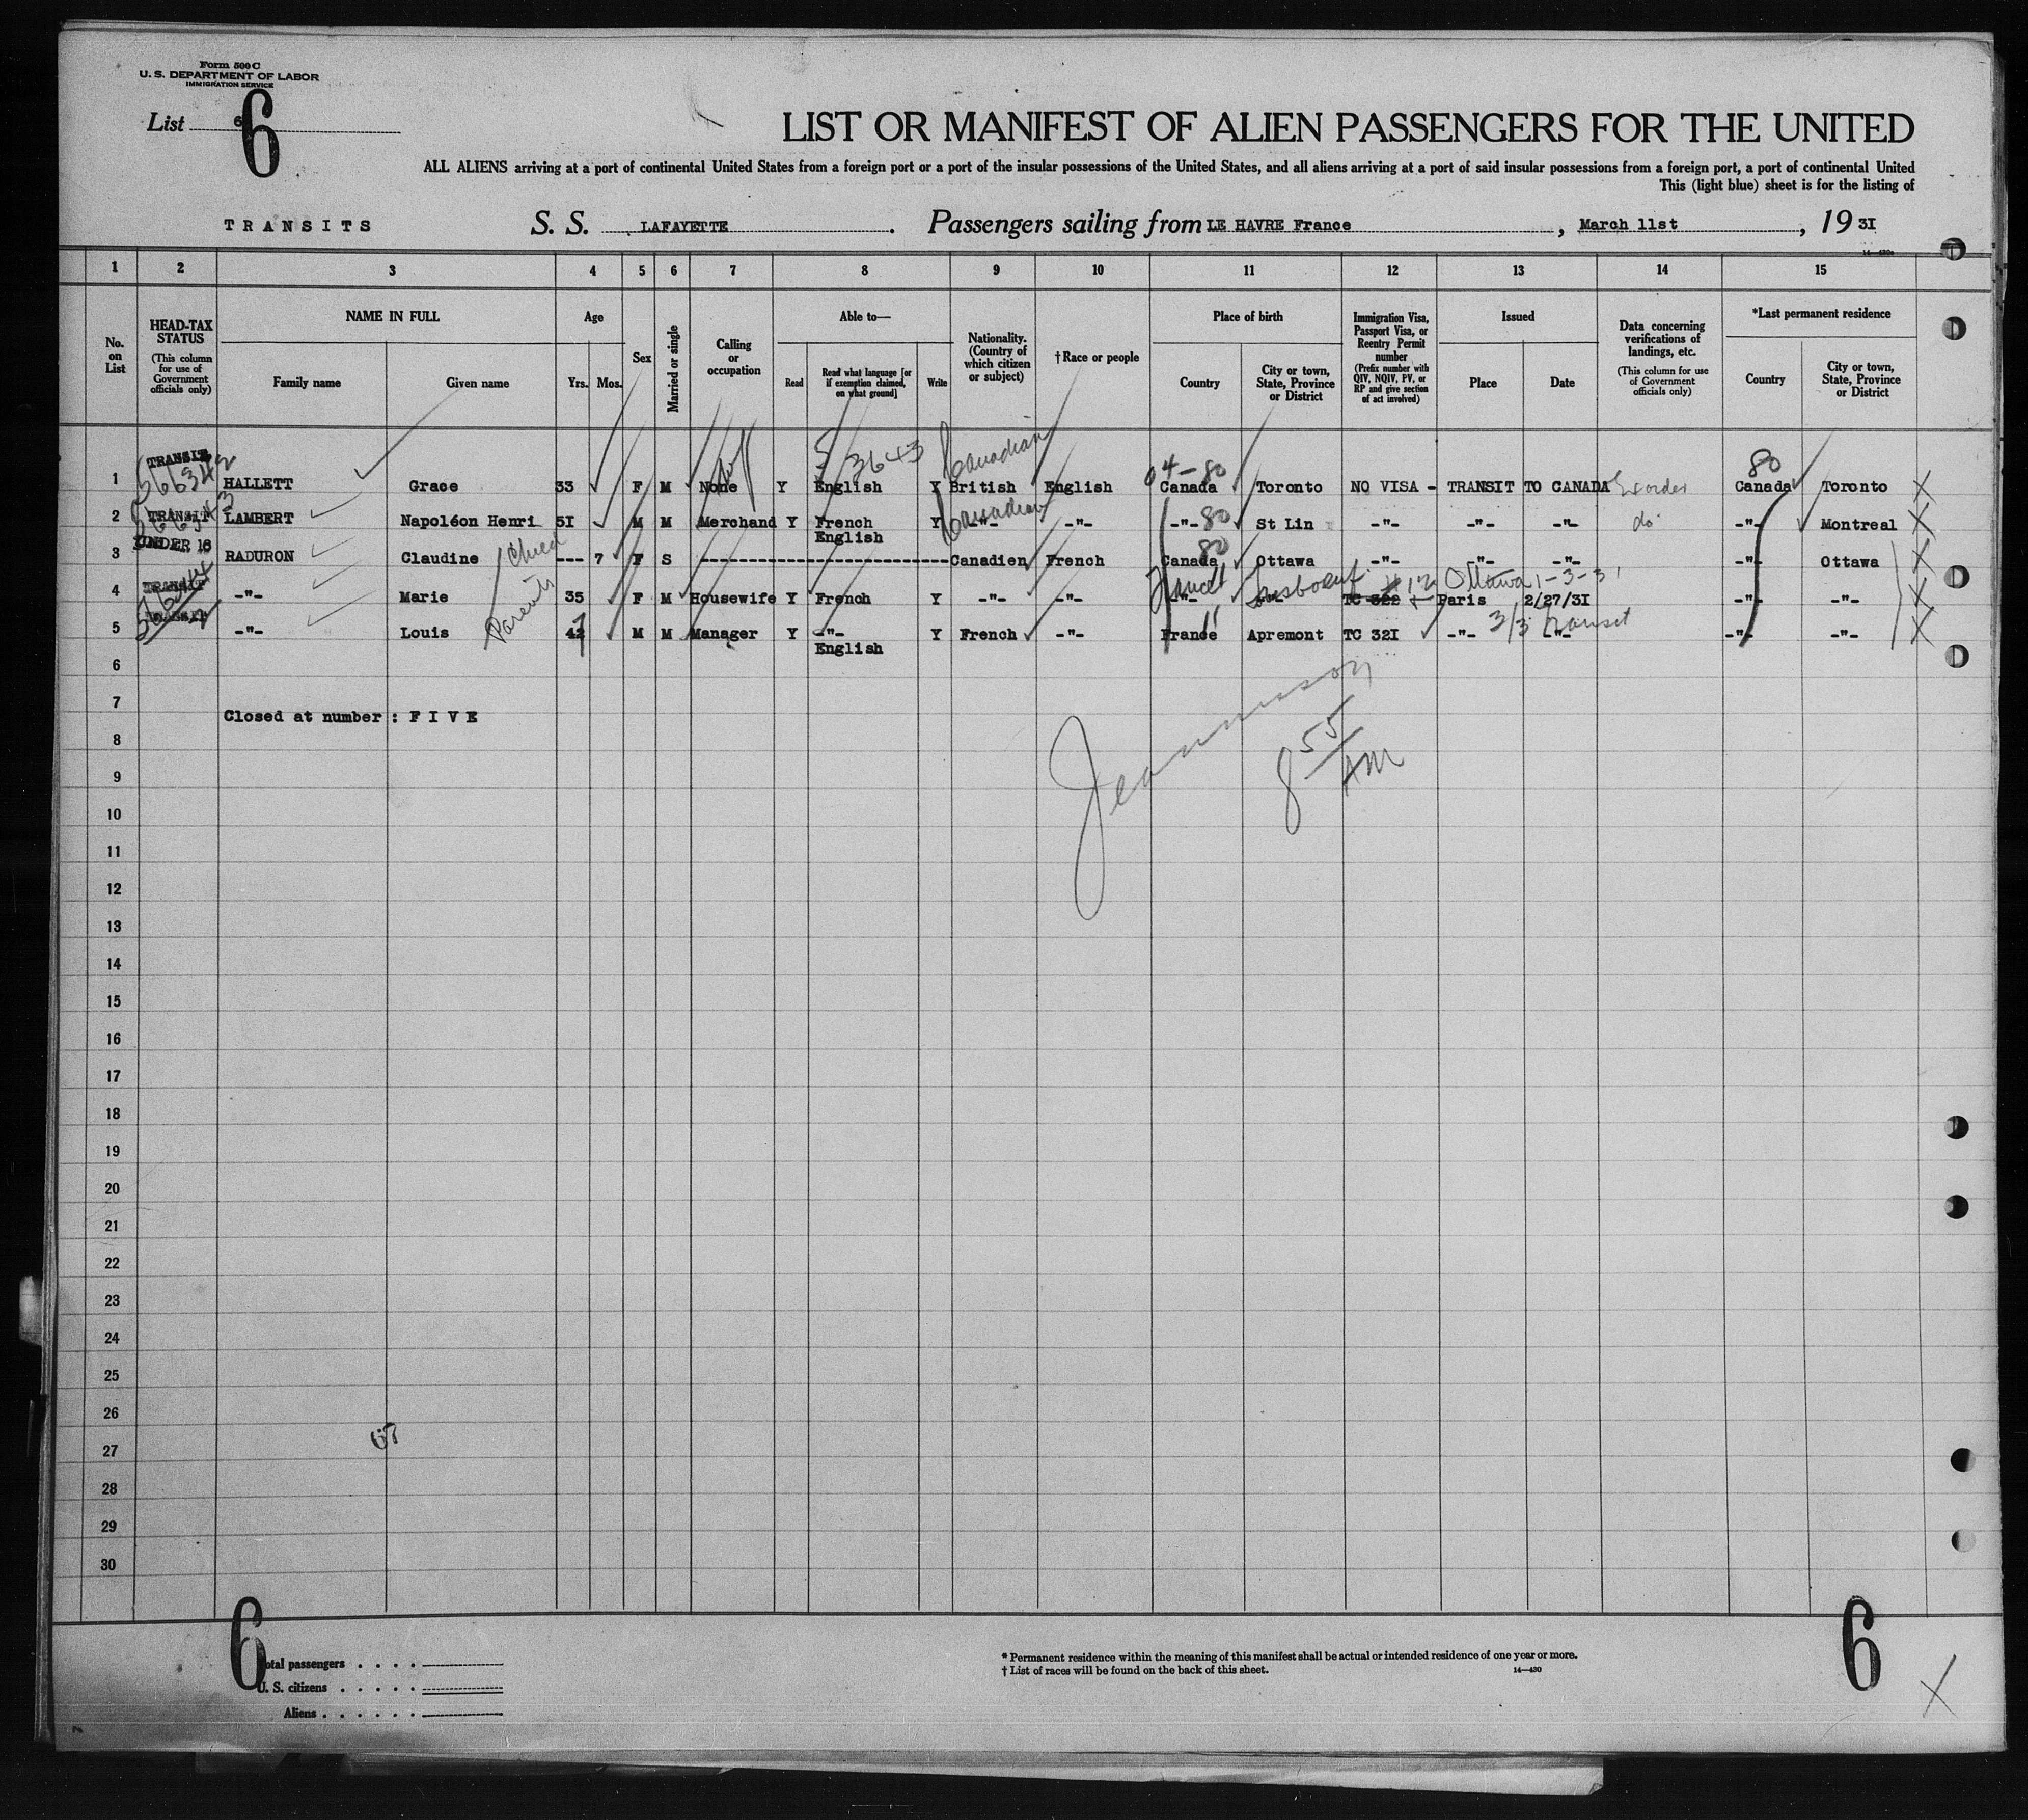 Form 500 C
U. S. DEPARTMENT OF LABOR
IMMIGRATION SERVICE
List 6
6
LIST OR MANIFEST OF ALIEN PASSENGERS FOR THE UNITED
ALL ALIENS arriving at a port of continental United States from a foreign port or a port of the insular possessions of the United States, and all aliens arriving at a port of said insular possessions from a foreign port, a port of continental United
This (light blue) sheet is for the listing of
TRANSITS S. S. LAFAYETTE . Passengers sailing from LE HAVRE France , March 11st , 19 3I
14—430c
1 2 3 4 5 6 7 8 9 10 11 12 13 14 15
No. on List
HEAD-TAX STATUS (This column for use of Government officials only)
NAME IN FULL Family name Given name
Age Yrs. Mos.
Sex
Married or single
Calling or occupation
Able to— Read Read what language [or if exemption claimed, on what ground] Write
Nationality. (Country of which citizen or subject)
†Race or people
Place of birth Country City or town, State, Province or District
Immigration Visa, Passport Visa, or Reentry Permit number (Prefix number with QIV, NQIV, PV, or RP and give section of act involved)
Issued Place Date
Data concerning verifications of landings, etc. (This column for use of Government officials only)
*Last permanent residence Country City or town, State, Province or District
TRANSIT 3643 Canadian 04-80 80
1 566342 HALLETT Grace 33 F M None Y English Y British English Canada Toronto NO VISA - TRANSIT TO CANADA Canada Toronto X
Canadian
2 TRANSIT LAMBERT Napoléon Henri 5I M M Merchand Y French Y -"- -"- -"- 80 St Lin -"- -"- -"- do -"- Montreal X
English
3 UNDER 16 RADURON Claudine Child --- 7 F S Canadien French Canada 80 Ottawa -"- -"- -"- -"- Ottawa X
France Ottawa 1-3-31
4 TRANSIT -"- Marie Parents 35 F M Housewife Y French Y -"- -"- -"- -"- TC 322 Paris 2/27/3I -"- -"- X
3/3 Transit
5 TRANSIT -"- Louis 42 M M Manager Y -"- Y French -"- France Apremont TC 32I -"- -"- -"- -"- X
English
6
7
Closed at number : F I V E
8 55/AM
8
9
10
11
12
13
14
15
16
17
18
19
20
21
22
23
24
25
26
67
27
28
29
30
6
Total passengers . . . .
U. S. citizens . . . . .
Aliens . . . . . .
* Permanent residence within the meaning of this manifest shall be actual or intended residence of one year or more.
† List of races will be found on the back of this sheet. 14—430
6
X